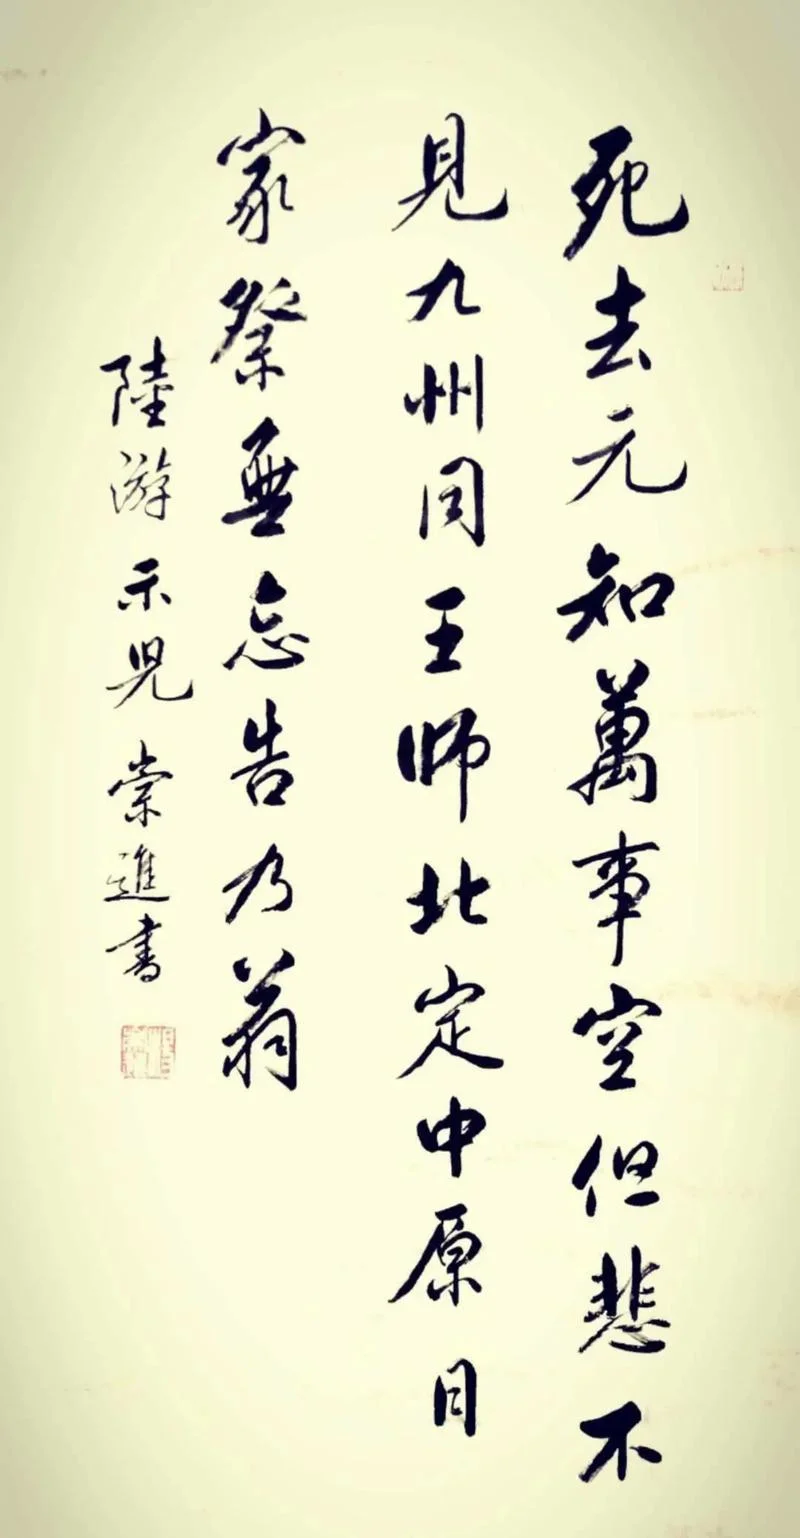 死去元知萬事空但悲不
見九州同王師北定中原日
家祭無忘告乃翁
陸游示兒崇進書